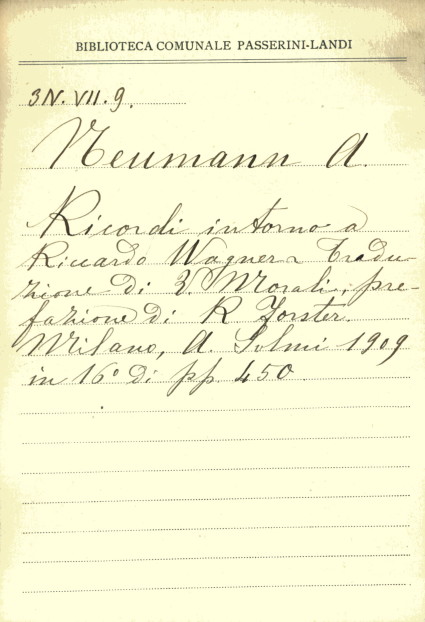 BIBLIOTECA COMUNALE PASSERINI-LANDI
3N. VII. 9.
Neumann A.
Ricordi intorno a
Riccardo Wagner Tradu-
zione di V. Morali, pre-
fazione di R Forster.
Milano, A. Solmi 1909
in 16° di pp. 450